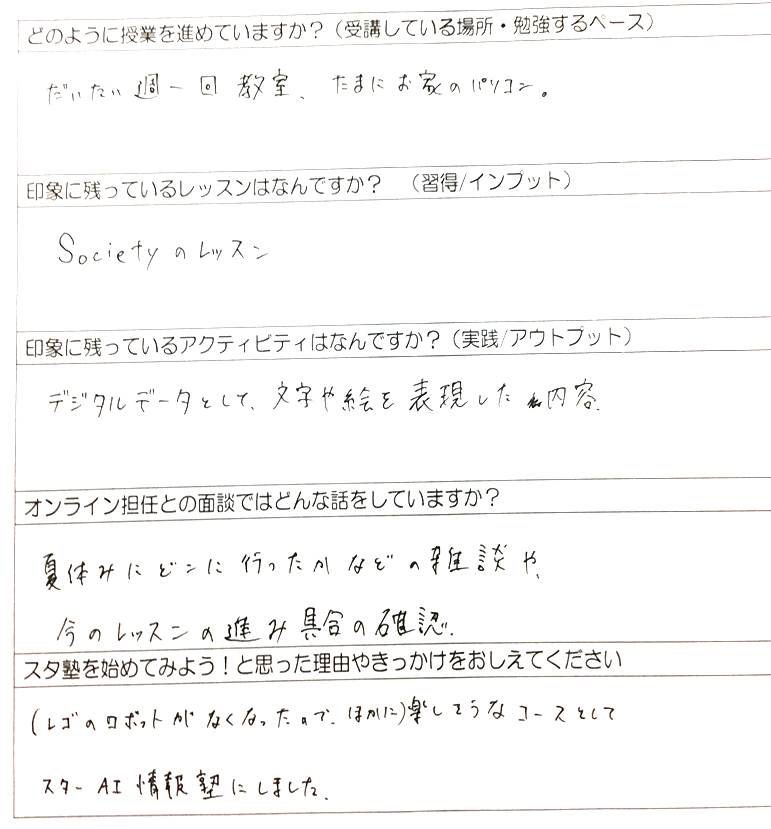 どのように授業を進めていますか？（受講している場所・勉強するペース）
だいたい週一回教室、たまにお家のパソコン。
印象に残っているレッスンはなんですか？　（習得/インプット）
Societyのレッスン
印象に残っているアクティビティはなんですか？（実践/アウトプット）
デジタルデータとして、文字や絵を表現した内容.
オンライン担任との面談ではどんな話をしていますか？
夏休みにどこに行ったかなどの雑談や、
今のレッスンの進み具合の確認.
スタ塾を始めてみよう！と思った理由やきっかけをおしえてください
(レゴのロボットがなくなったので、ほかに)楽しそうなコースとして
スターAI情報塾にしました.